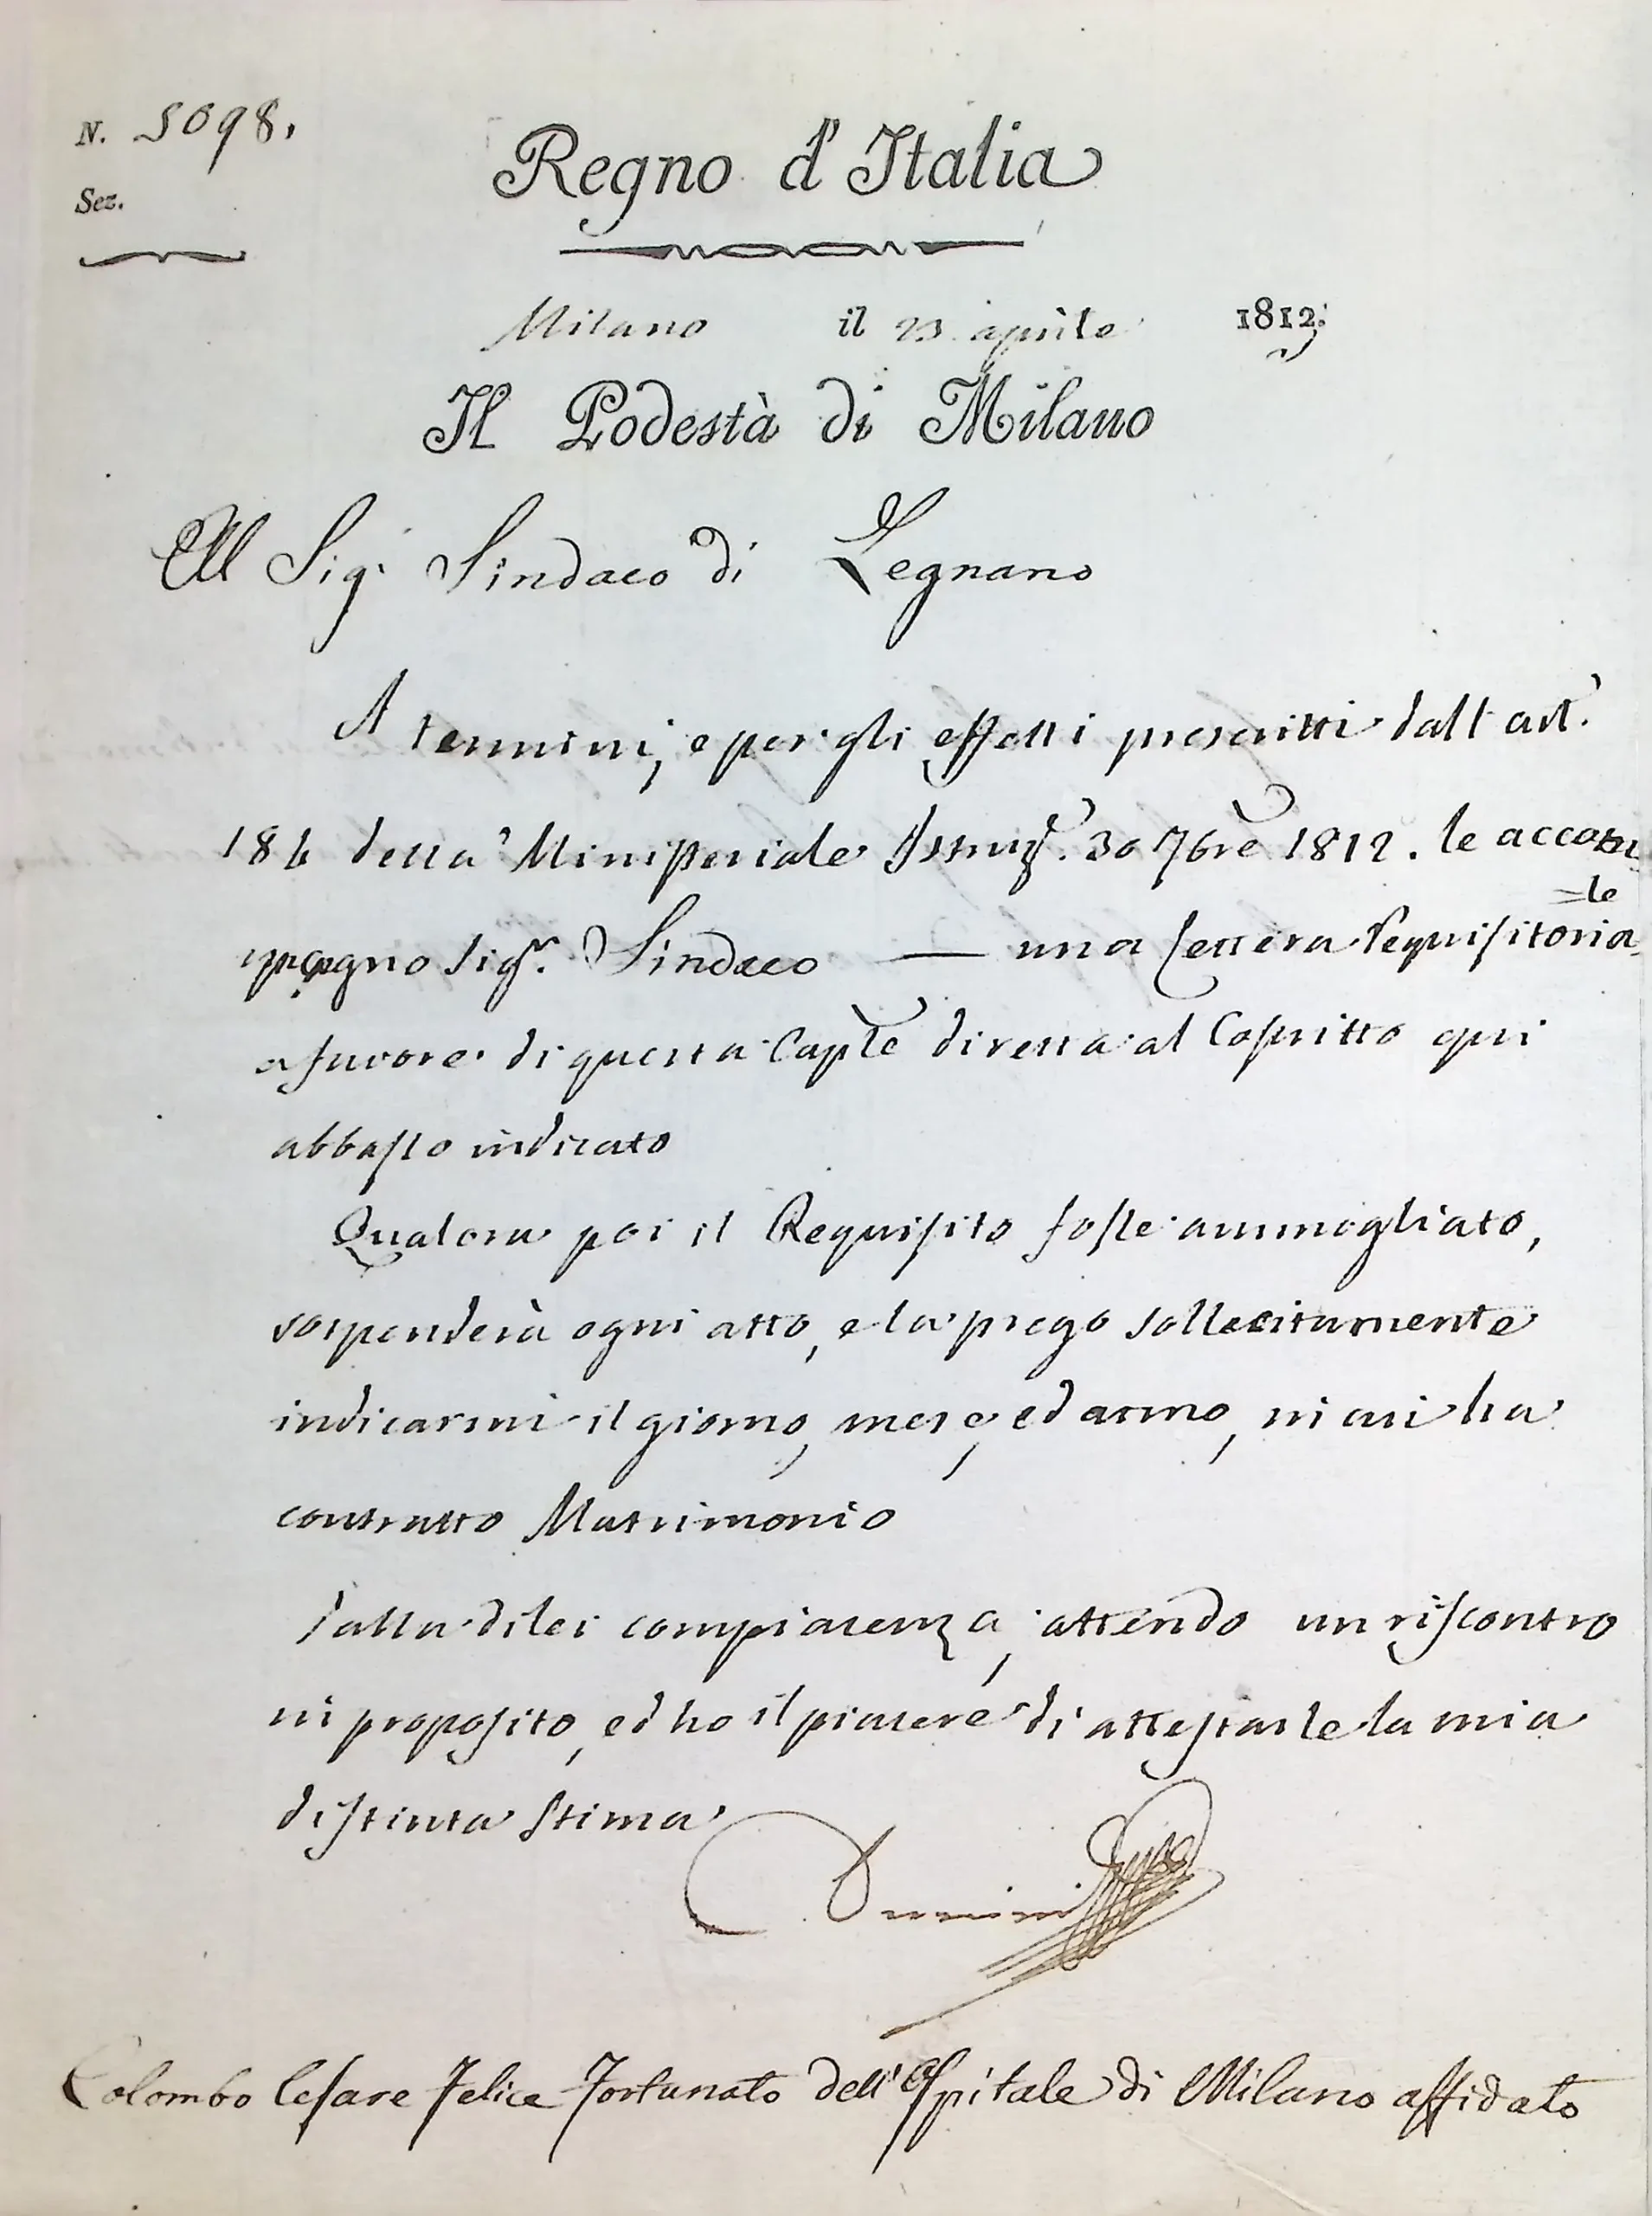 N. 5098.
Sez.
Regno d'Italia
Milano il 23 aprile 1812.
Il Podestà di Milano
Al Sig. Sindaco di Legnano
A termini, e per gli effetti prescritti dall'art.
184 della Ministeriale 30 7bre 1812. le accom
pagno Sigr. Sindaco — una Lettera Requisitoria
=le
a favore di questa Caple diretta al Coscritto qui
abbasso indicato
Qualora poi il Requisito fosse ammogliato,
sospenderà ogni atto, e la prego sollecitamente
indicarmi il giorno, mese, ed anno, in cui ha
contratto Matrimonio
Dalla di lei compiacenza, attendo un riscontro
in proposito, ed ho il piacere di attestarle la mia
distinta stima
Durini
Colombo Cesare Felice Fortunato dell'Ospitale di Milano affidato